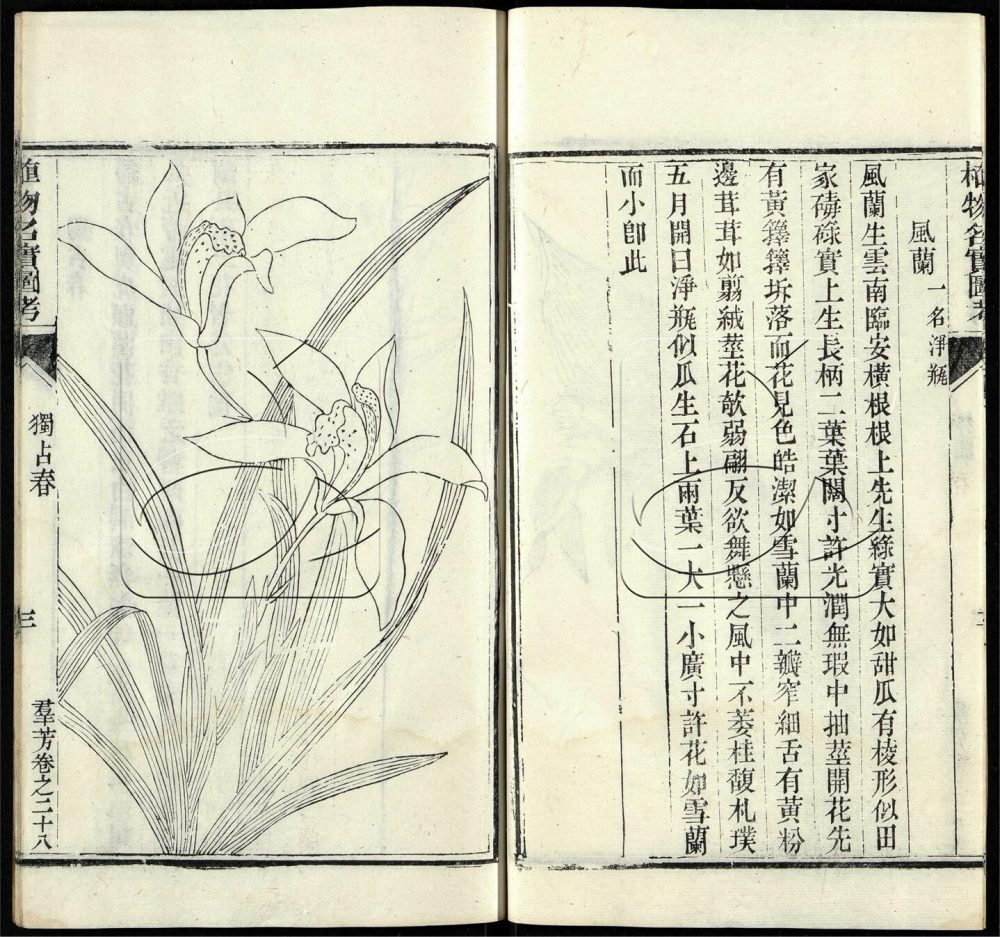 植物名實圖考
風蘭 一名淨瓶
風蘭生雲南臨安橫根根上先生綠實大如甜瓜有棱形似田
家碡碌實上生長柄二葉葉闊寸許光潤無瑕中抽莖開花先
有黃籜籜坼落而花見色皓潔如雪蘭中二瓣窄細舌有黃粉
邊茸茸如翦絨莖花欹弱翩反欲舞懸之風中不萎桂馥札璞
五月開曰淨瓶似瓜生石上兩葉一大一小廣寸許花如雪蘭
而小卽此
植物名實圖考
獨占春
三
羣芳卷之二十八